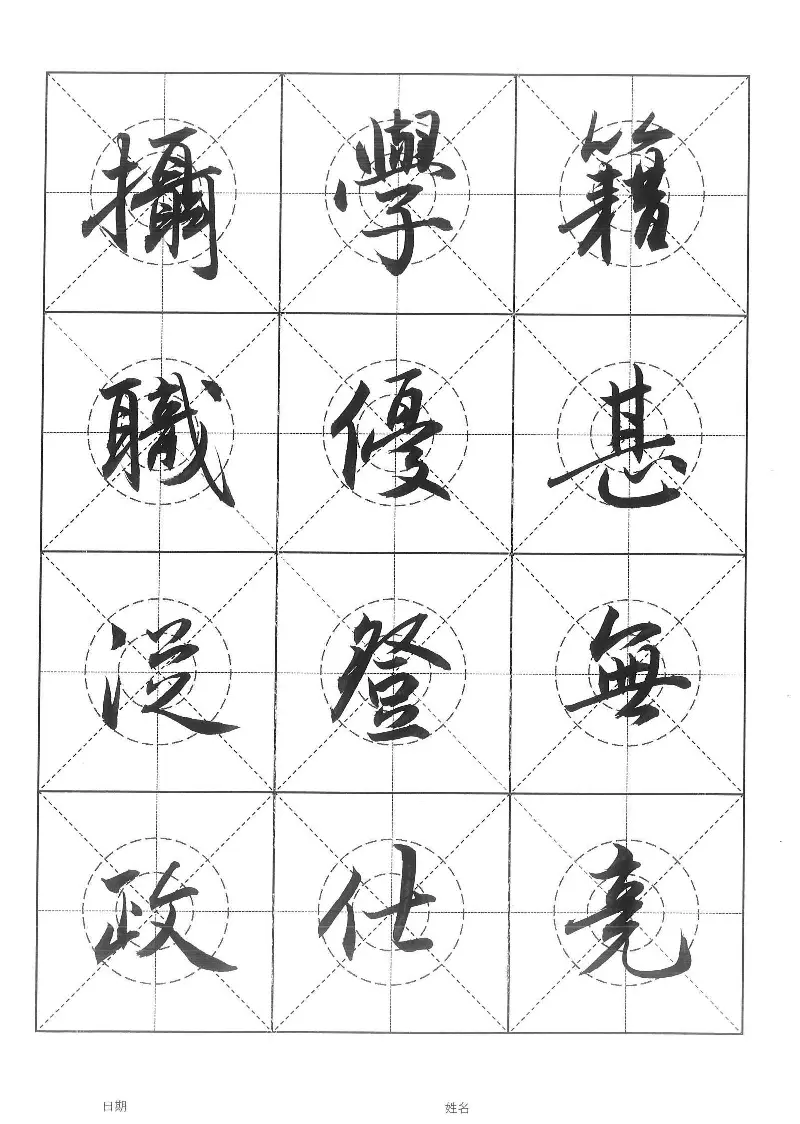 籍甚無竟
學優登仕
攝職從政
日期
姓名